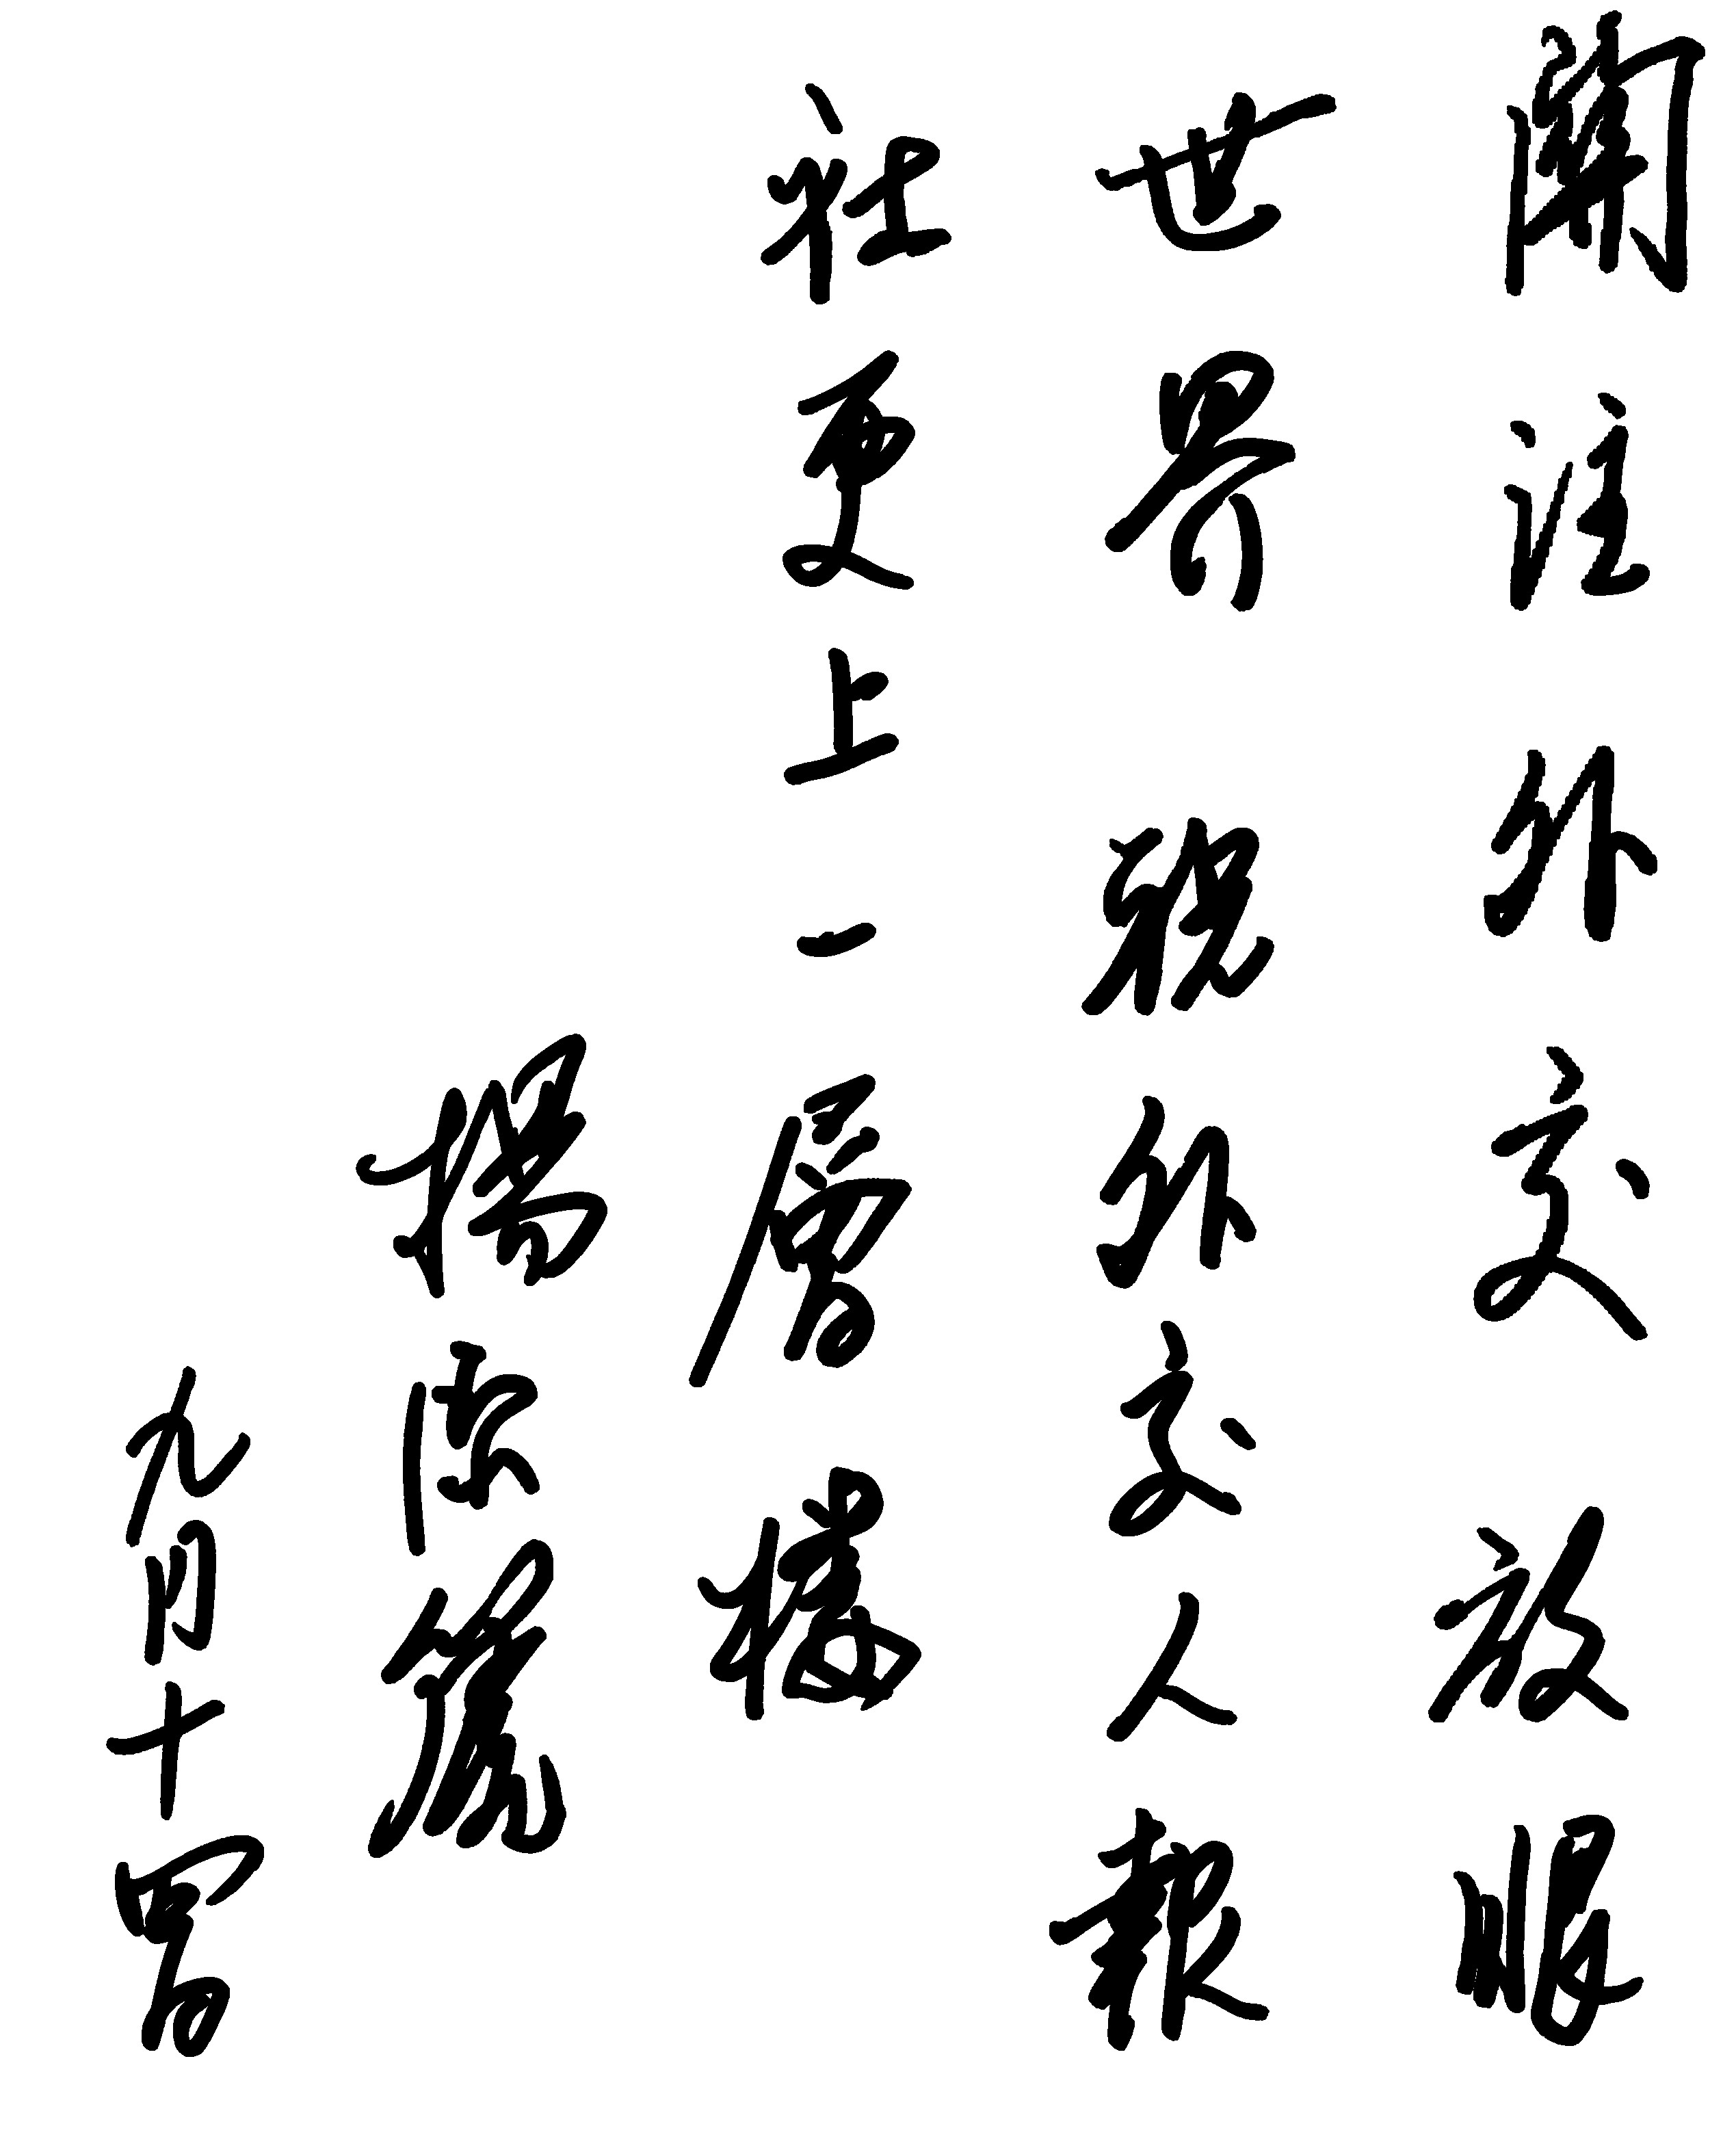 關注外交放眼
世界 祝外交人報
社更上一層樓
楊潔篪
九月十四日